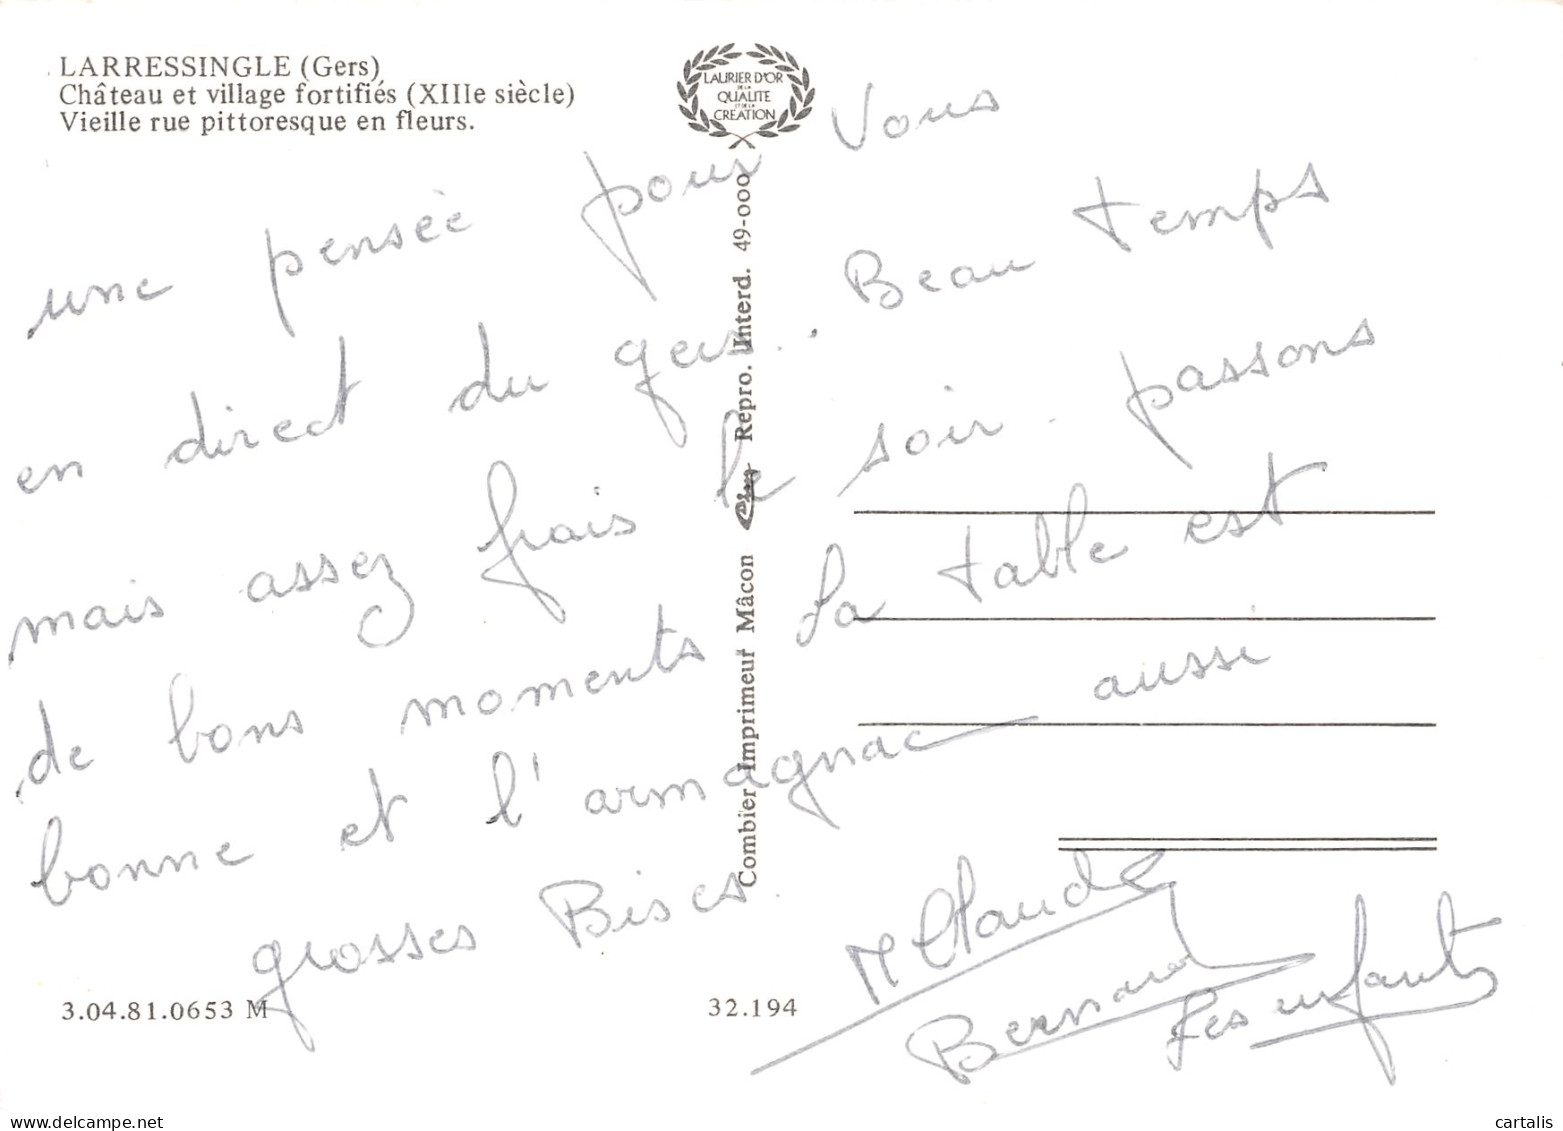 LARRESSINGLE (Gers)
Château et village fortifiés (XIIIe siècle)
Vieille rue pittoresque en fleurs.
LAURIER D'OR
DE LA
QUALITE
ET DE LA
CREATION
une pensée pour Vous
en direct du gers. . Beau temps
mais assez frais le soir. passons
de bons moments la table est
bonne et l'armagnac aussi
grosses Bises.
M Claude
Bernard
Les enfants
Combier Imprimeur Mâcon Cim Repro. Interd. 49-000
3.04.81.0653 M
32.194
www.delcampe.net
cartalis